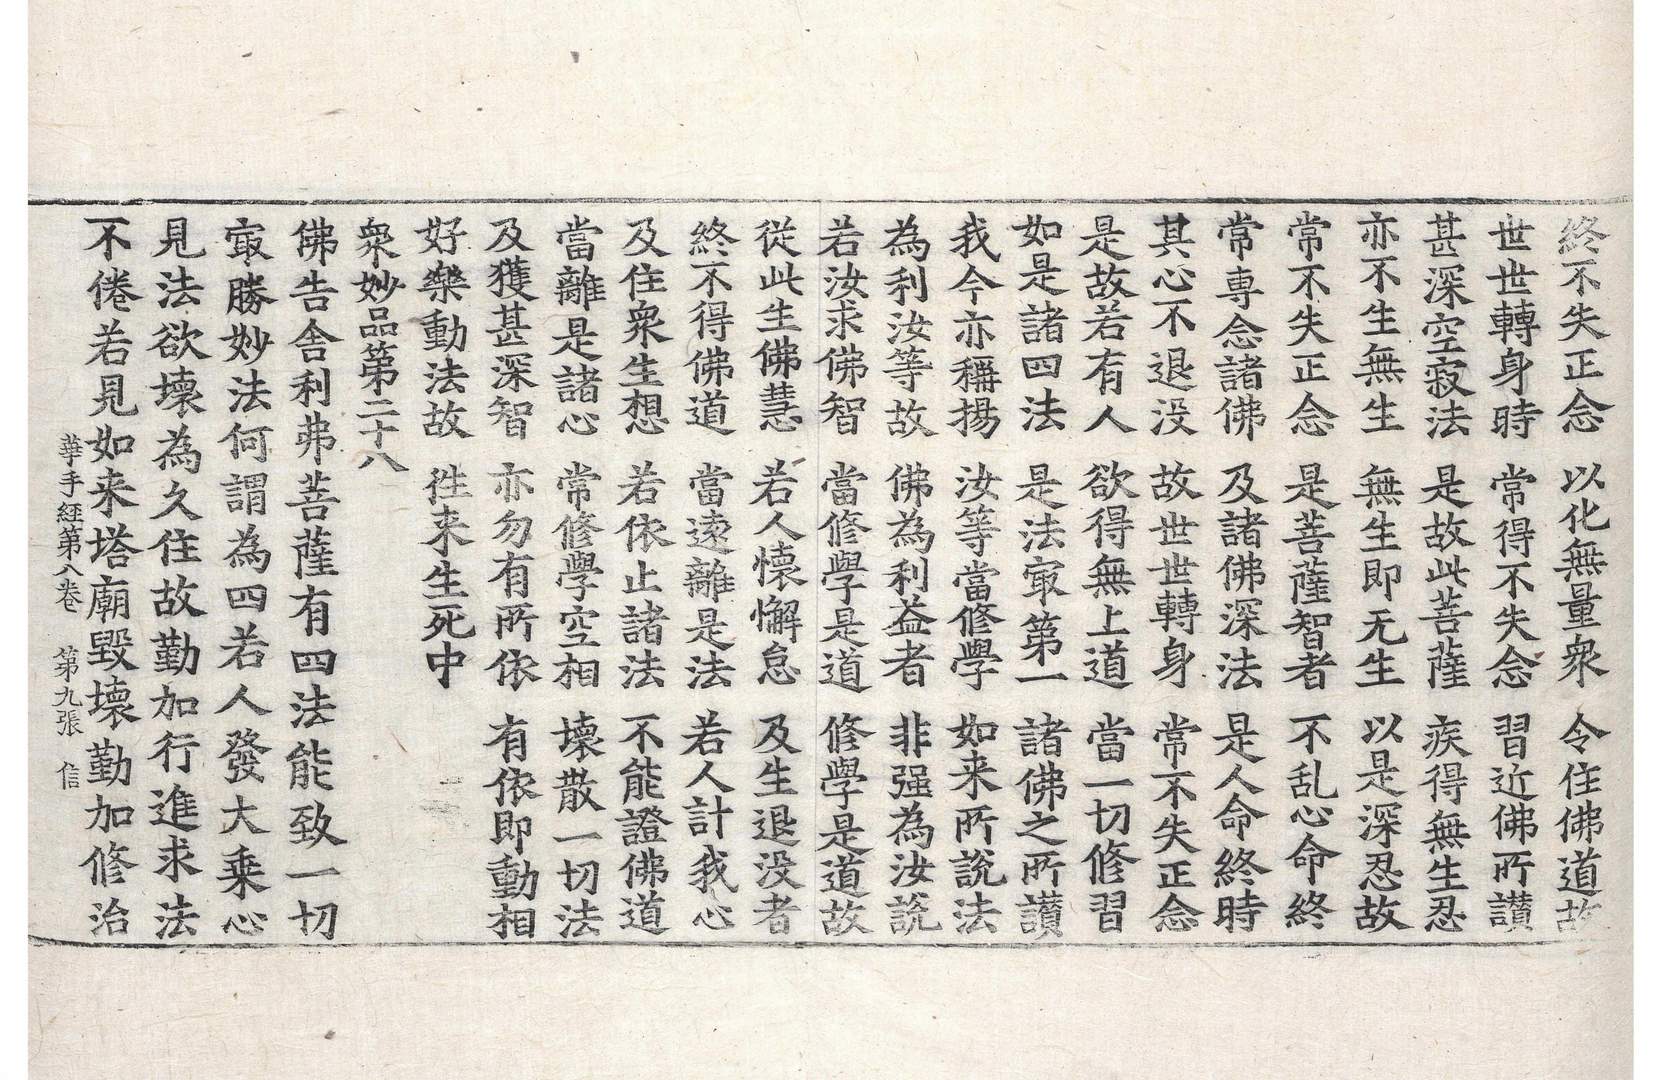 終不失正念　以化無量衆　令住佛道故
世世轉身時　常得不失念　習近佛所讃
甚深空寂法　是故此菩薩　疾得無生忍
亦不生無生　無生即无生　以是深忍故
常不失正念　是菩薩智者　不乱心命終
常専念諸佛　及諸佛深法　是人命終時
其心不退没　故世世轉身　常不失正念
是故若有人　欲得無上道　當一切修習
如是諸四法　是法㝡第一　諸佛之所讃
我今亦稱揚　汝等當修學　如来所說法
為利汝等故　佛為利益者　非强為汝說
若汝求佛智　當修學是道　修學是道故
從此生佛慧　若人懐懈怠　及生退没者
終不得佛道　當遠離是法　若人計我心
及住衆生想　若依止諸法　不能證佛道
當離是諸心　常修學空相　壊散一切法
及獲甚深智　亦勿有所依　有依即動相
好樂動法故　徃来生死中
衆妙品第二十八
佛告舎利弗菩薩有四法能致一切
㝡勝妙法何謂為四若人發大乗心
見法欲壊為久住故勤加行進求法
不倦若見如来塔廟毀壊勤加修治
華手經第八卷　第九張　信